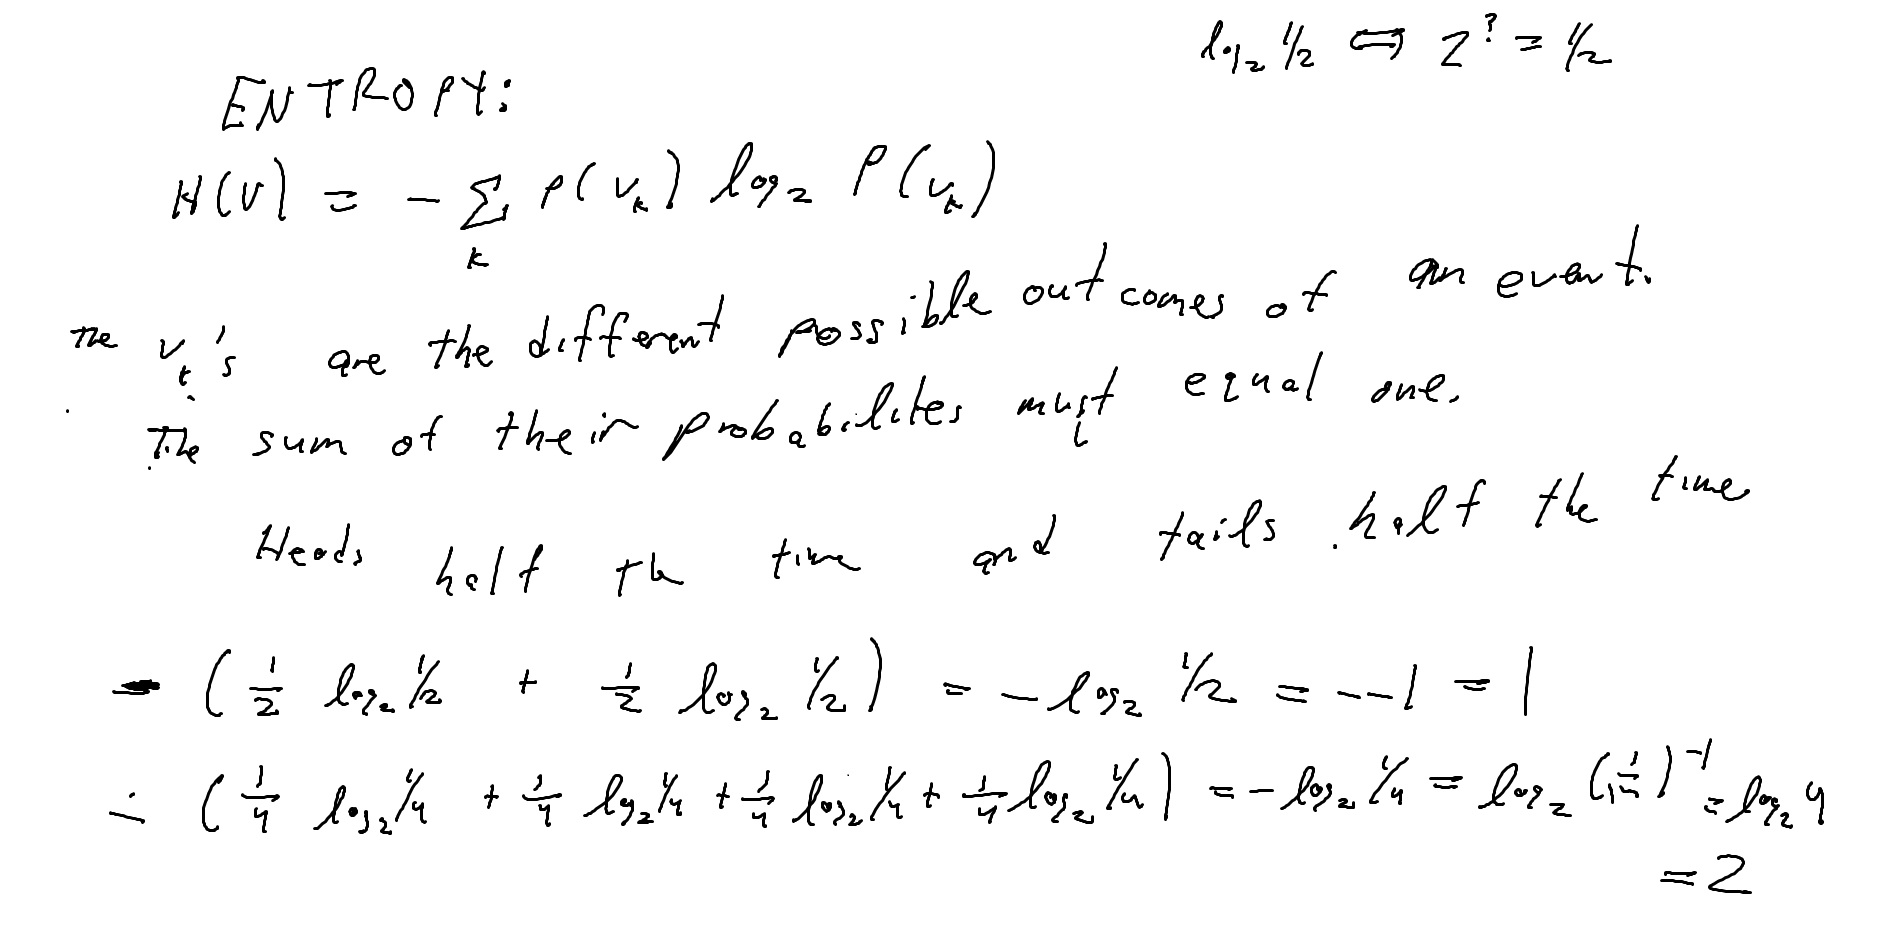 log₂ ½ ⟺ 2^? = ½
ENTROPY:
H(V) = - Σ_k P(v_k) log₂ P(v_k)
The v_k's are the different possible outcomes of an event.
The sum of their probabilites must equal one.
Heads half th time and tails half the time
- (1/2 log₂ 1/2 + 1/2 log₂ 1/2) = - log₂ 1/2 = - - 1 = 1
- (1/4 log₂ 1/4 + 1/4 log₂ 1/4 + 1/4 log₂ 1/4 + 1/4 log₂ 1/4) = - log₂ 1/4 = log₂ (1/4)^-1 = log₂ 4
= 2